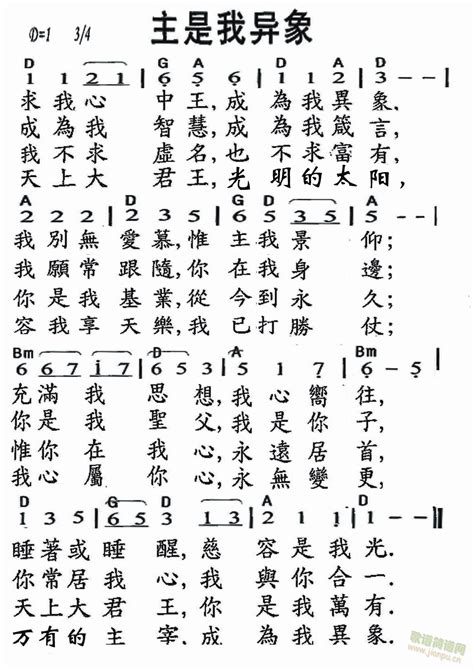 主是我异象
D=1 3/4
D G A D
1 1 21 | 65 6 | 1 1 2 | 1 - - |
求我心 中王,成為我異象.
成為我 智慧,成為我箴言,
我不求 虛名,也不求富有,
天上大 君王,光明的太阳,
A D G D A
2 2 2 | 2 1 2 | 5 5 35 | 5 - - |
我別無愛慕,惟主我景仰;
我願常跟隨,你在我身邊;
你是我基業,從今到永久;
容我享天樂,我已打勝仗;
Bm G D A Bm
6 67 i7 | 65 3 5 | 5 1 7 | 6 - 5 |
充滿我思想,我心嚮往,
你是我聖父,我是你子,
惟你在我心,永遠居首,
我心屬你心,永無變更,
D G D A D
1 3 5 | 65 3 13 | 2 1 1 | 1 - - ‖
睡著或睡醒,慈容是我光.
你常居我心,我與你合一.
天上大君王,你是我萬有.
万有的主宰.成為我異象.
歌谱简谱网
www.jianpu.cn